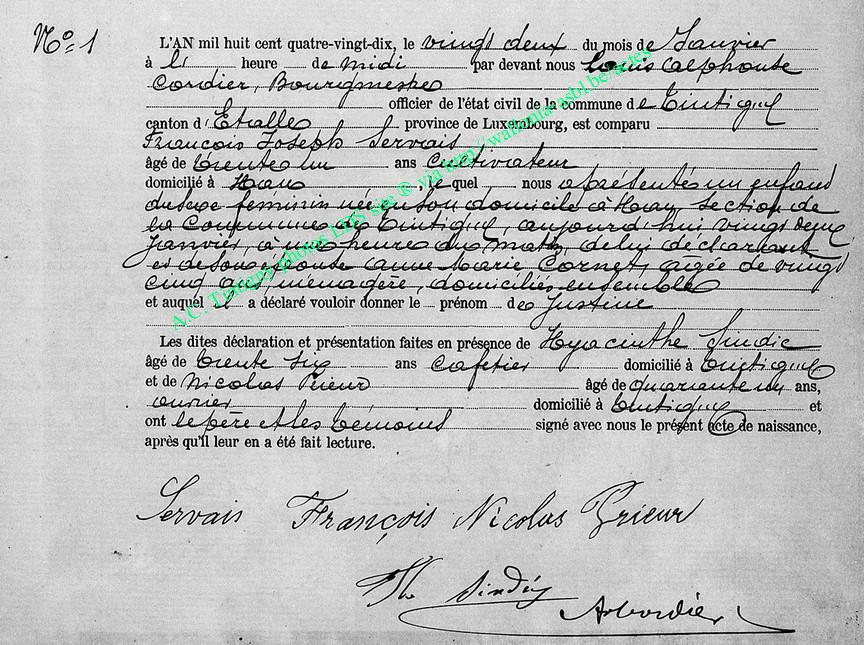 No 1
L'AN mil huit cent quatre-vingt-dix, le vingt deux du mois de Janvier
à heure de midi par devant nous Louis Alphonse
Cordier, Bourgmestre
officier de l'état civil de la commune de Tintigny
canton d'Etalle province de Luxembourg, est comparu
François Joseph Servais
âgé de trente un ans cultivateur
domicilié à Han, lequel nous a présenté un enfant
du sexe féminin née en son domicile à Han, section de
la Commune de Tintigny, aujourd'hui vingt deux
Janvier, à heure du matin, de lui déclarant
et de son épouse Anne Marie Cornet, agée de vingt
cinq ans, ménagère, domiciliés ensemble
et auquel il a déclaré vouloir donner le prénom de Justine
Les dites déclaration et présentation faites en présence de Hyacinthe Sindic
âgé de trente six ans cafetier domicilié à Tintigny
et de Nicolas Prieur âgé de quarante un ans,
ouvrier domicilié à Tintigny et
ont le père et les témoins signé avec nous le présent acte de naissance,
après qu'il leur en a été fait lecture.
Servais François Nicolas Prieur
Sindic
Cordier
A.C. Tintigny photos LDS site ® via http://wallonia-asbl.be/actes